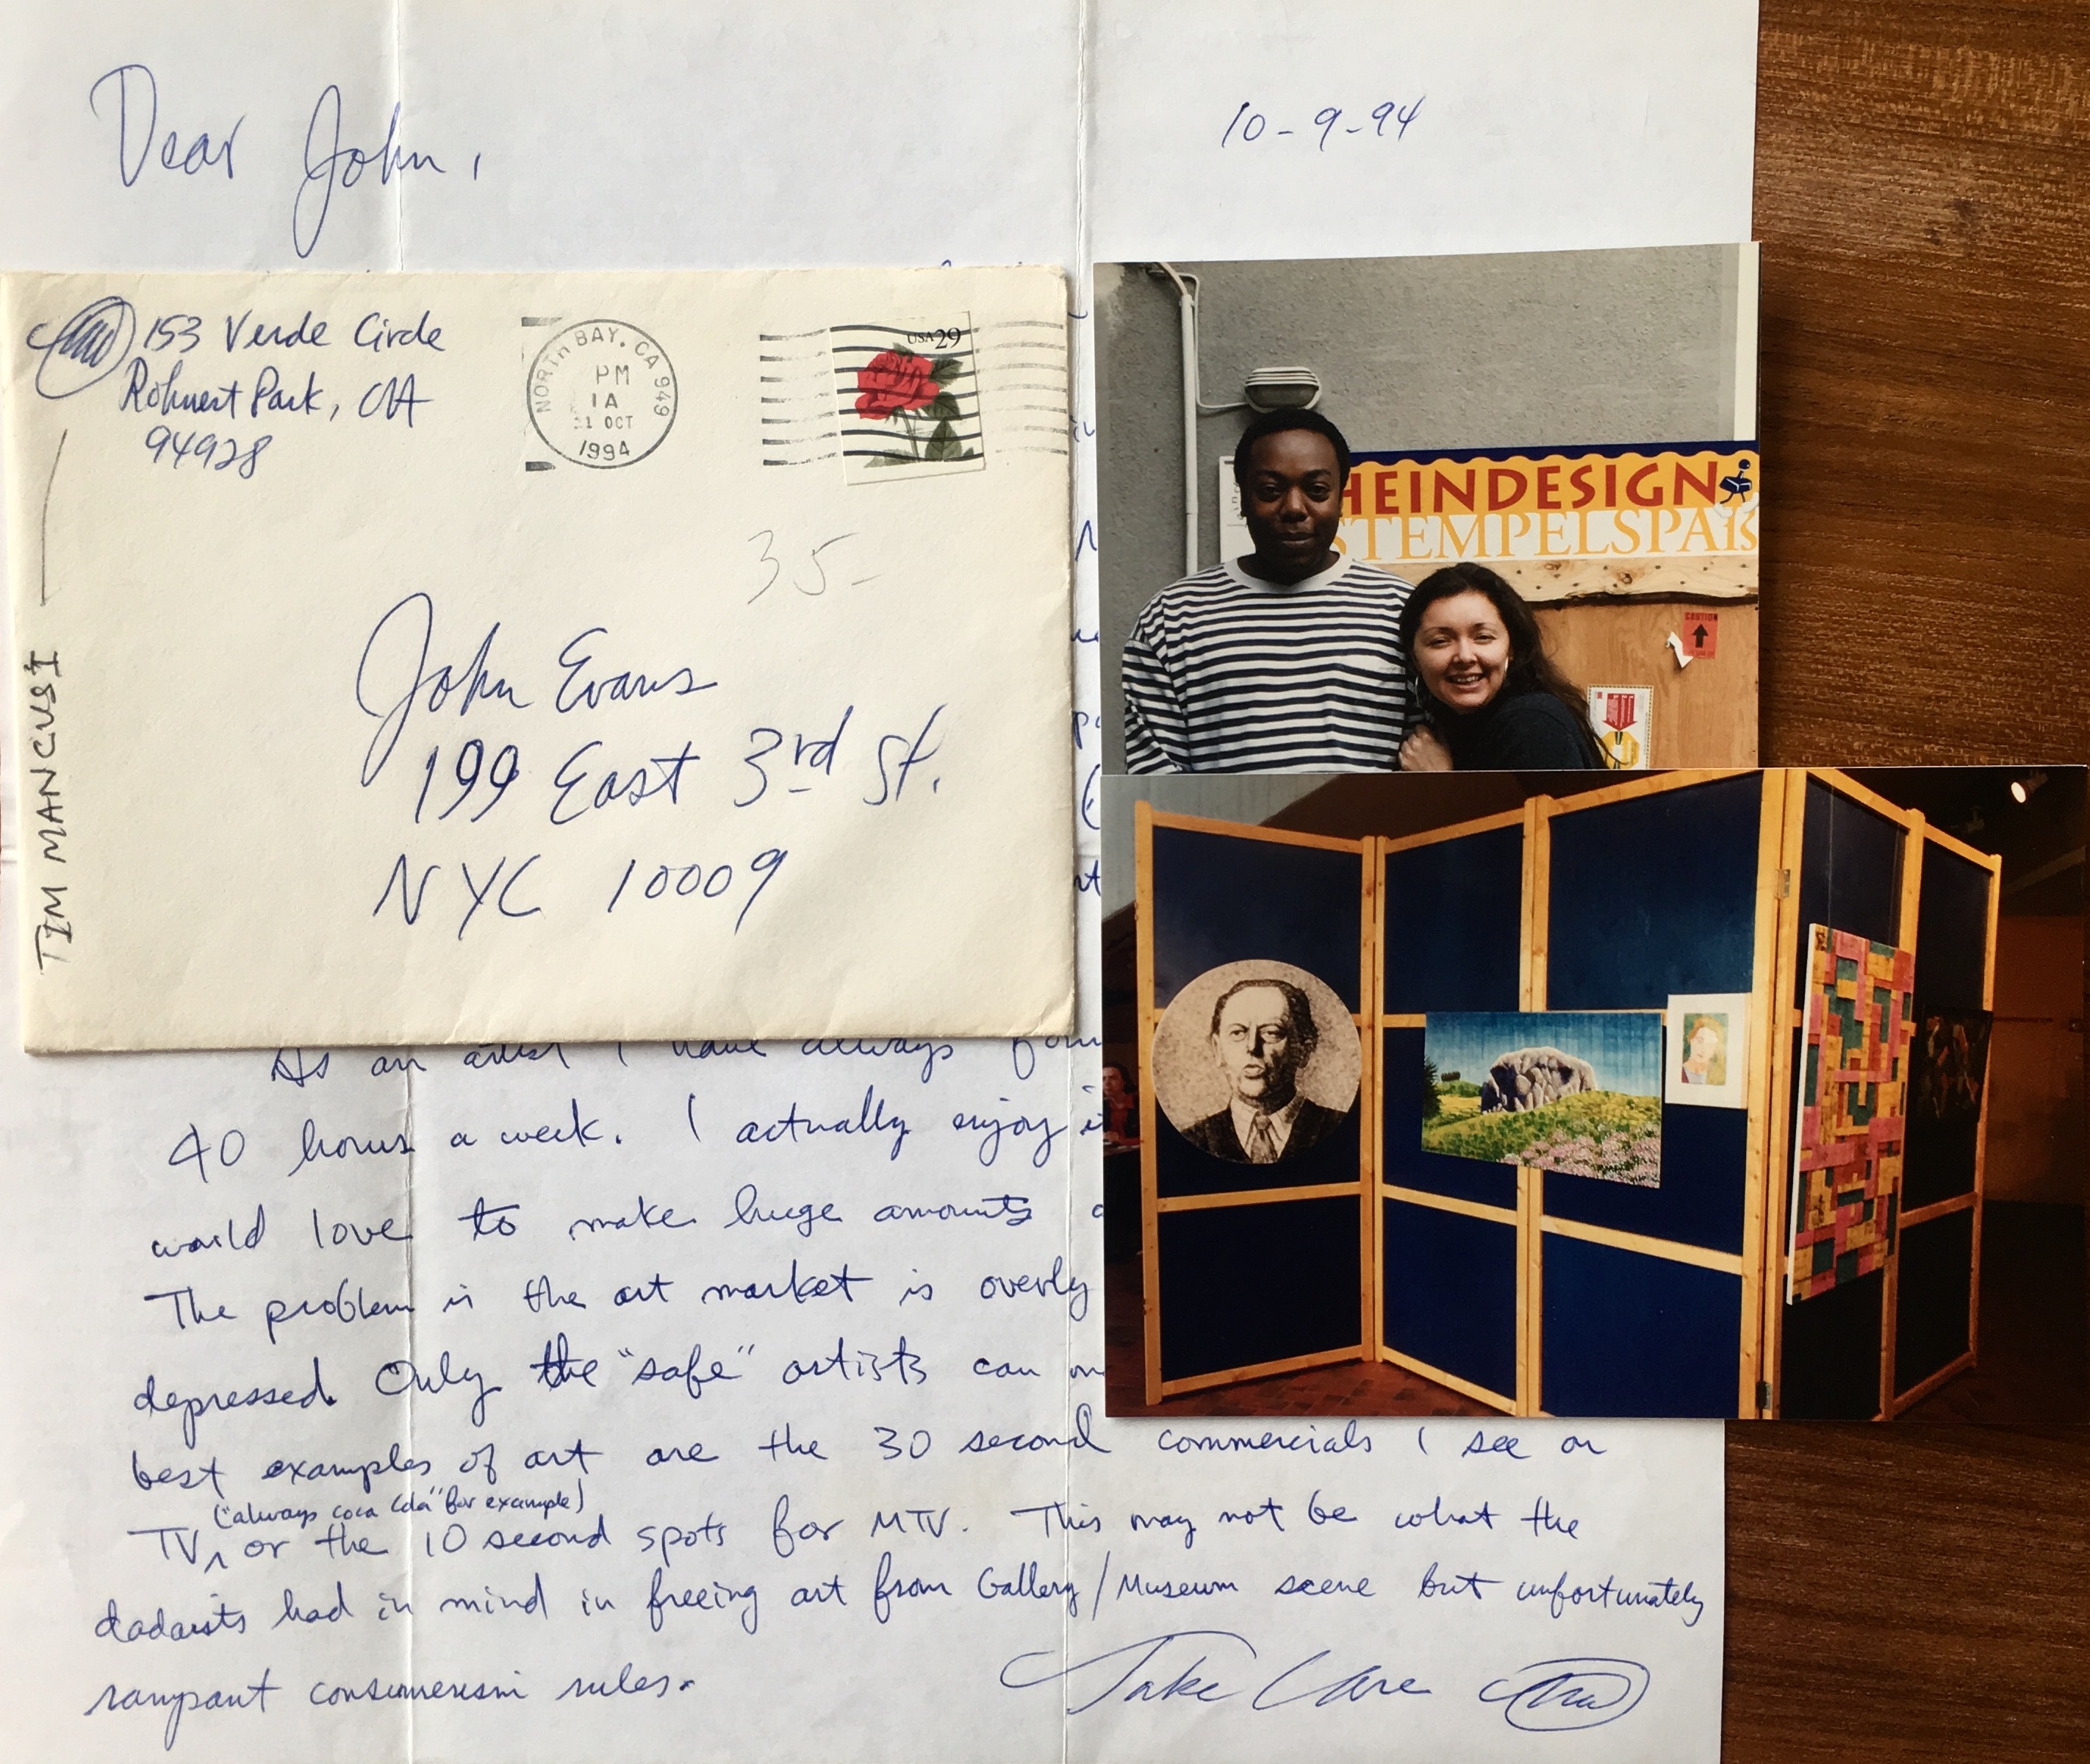 Dear John,
10-9-94
153 Verde Circle
Rohnert Park, CA
94928
NORTH BAY, CA 949
PM
1A
1 OCT
1994
USA 29
35-
TIM MANCUSI
John Evans
199 East 3rd St.
NYC 10009
HEINDESIGN
STEMPELSPAß
CAUTION
As an artist I have always
40 hours a week. I actually enjoy
would love to make huge amounts
The problem is the art market is overly
depressed. Only the "safe" artists can
best examples of art are the 30 second commercials I see on
("always coca cola" for example)
TV, or the 10 second spots for MTV. This may not be what the
dadaists had in mind in freeing art from Gallery/Museum scene but unfortunately
rampant consumerism rules.
Take Care